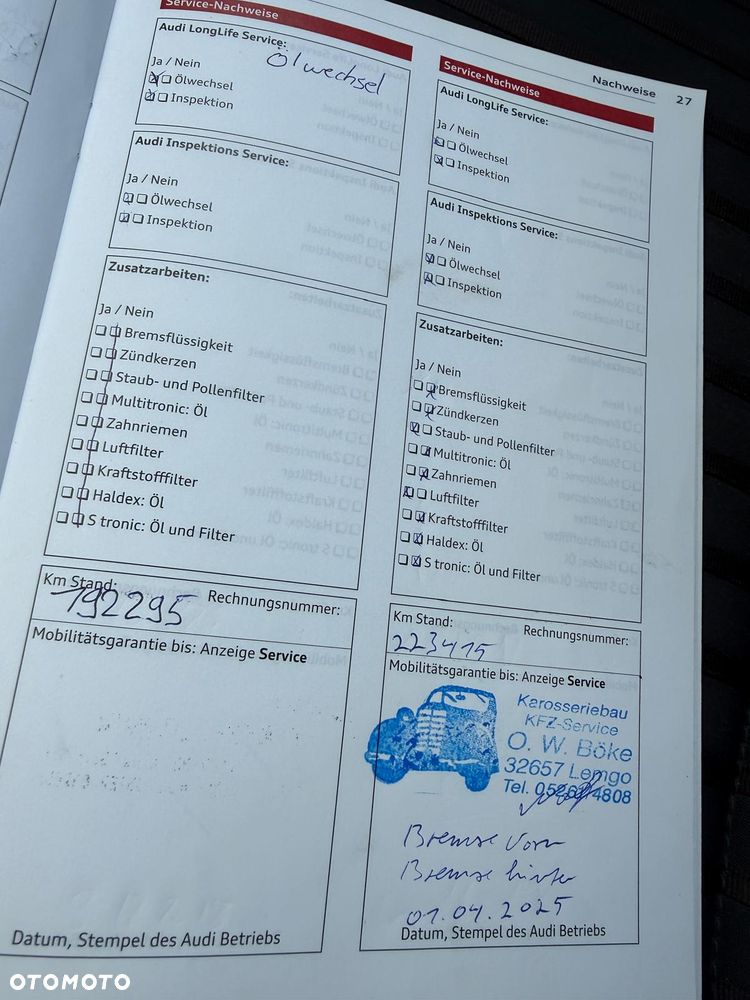 Service-Nachweise
Audi LongLife Service:
Ölwechsel
Ja / Nein
Ölwechsel
Inspektion
Audi Inspektions Service:
Ja / Nein
Ölwechsel
Inspektion
Zusatzarbeiten:
Ja / Nein
Bremsflüssigkeit
Zündkerzen
Staub- und Pollenfilter
Multitronic: Öl
Zahnriemen
Luftfilter
Kraftstofffilter
Haldex: Öl
S tronic: Öl und Filter
Km Stand:
192295
Rechnungsnummer:
Mobilitätsgarantie bis: Anzeige Service
Datum, Stempel des Audi Betriebs
Nachweise 27
Service-Nachweise
Audi LongLife Service:
Ja / Nein
Ölwechsel
Inspektion
Audi Inspektions Service:
Ja / Nein
Ölwechsel
Inspektion
Zusatzarbeiten:
Ja / Nein
Bremsflüssigkeit
Zündkerzen
Staub- und Pollenfilter
Multitronic: Öl
Zahnriemen
Luftfilter
Kraftstofffilter
Haldex: Öl
S tronic: Öl und Filter
Km Stand:
Rechnungsnummer:
223415
Mobilitätsgarantie bis: Anzeige Service
Karosseriebau
KFZ-Service
O. W. Böke
32657 Lemgo
Tel.
Bremse vorn
Bremse hinten
01.04.2025
Datum, Stempel des Audi Betriebs
OTOMOTO